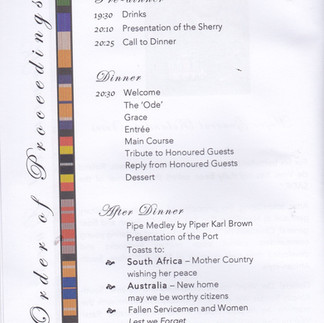 Order of Proceedings
Pre-dinner
19:30 Drinks
20:10 Presentation of the Sherry
20:25 Call to Dinner
Dinner
20:30 Welcome
The 'Ode'
Grace
Entrée
Main Course
Tribute to Honoured Guests
Reply from Honoured Guests
Dessert
After Dinner
Pipe Medley by Piper Karl Brown
Presentation of the Port
Toasts to:
South Africa – Mother Country
wishing her peace
Australia – New home
may we be worthy citizens
Fallen Servicemen and Women
Lest we Forget